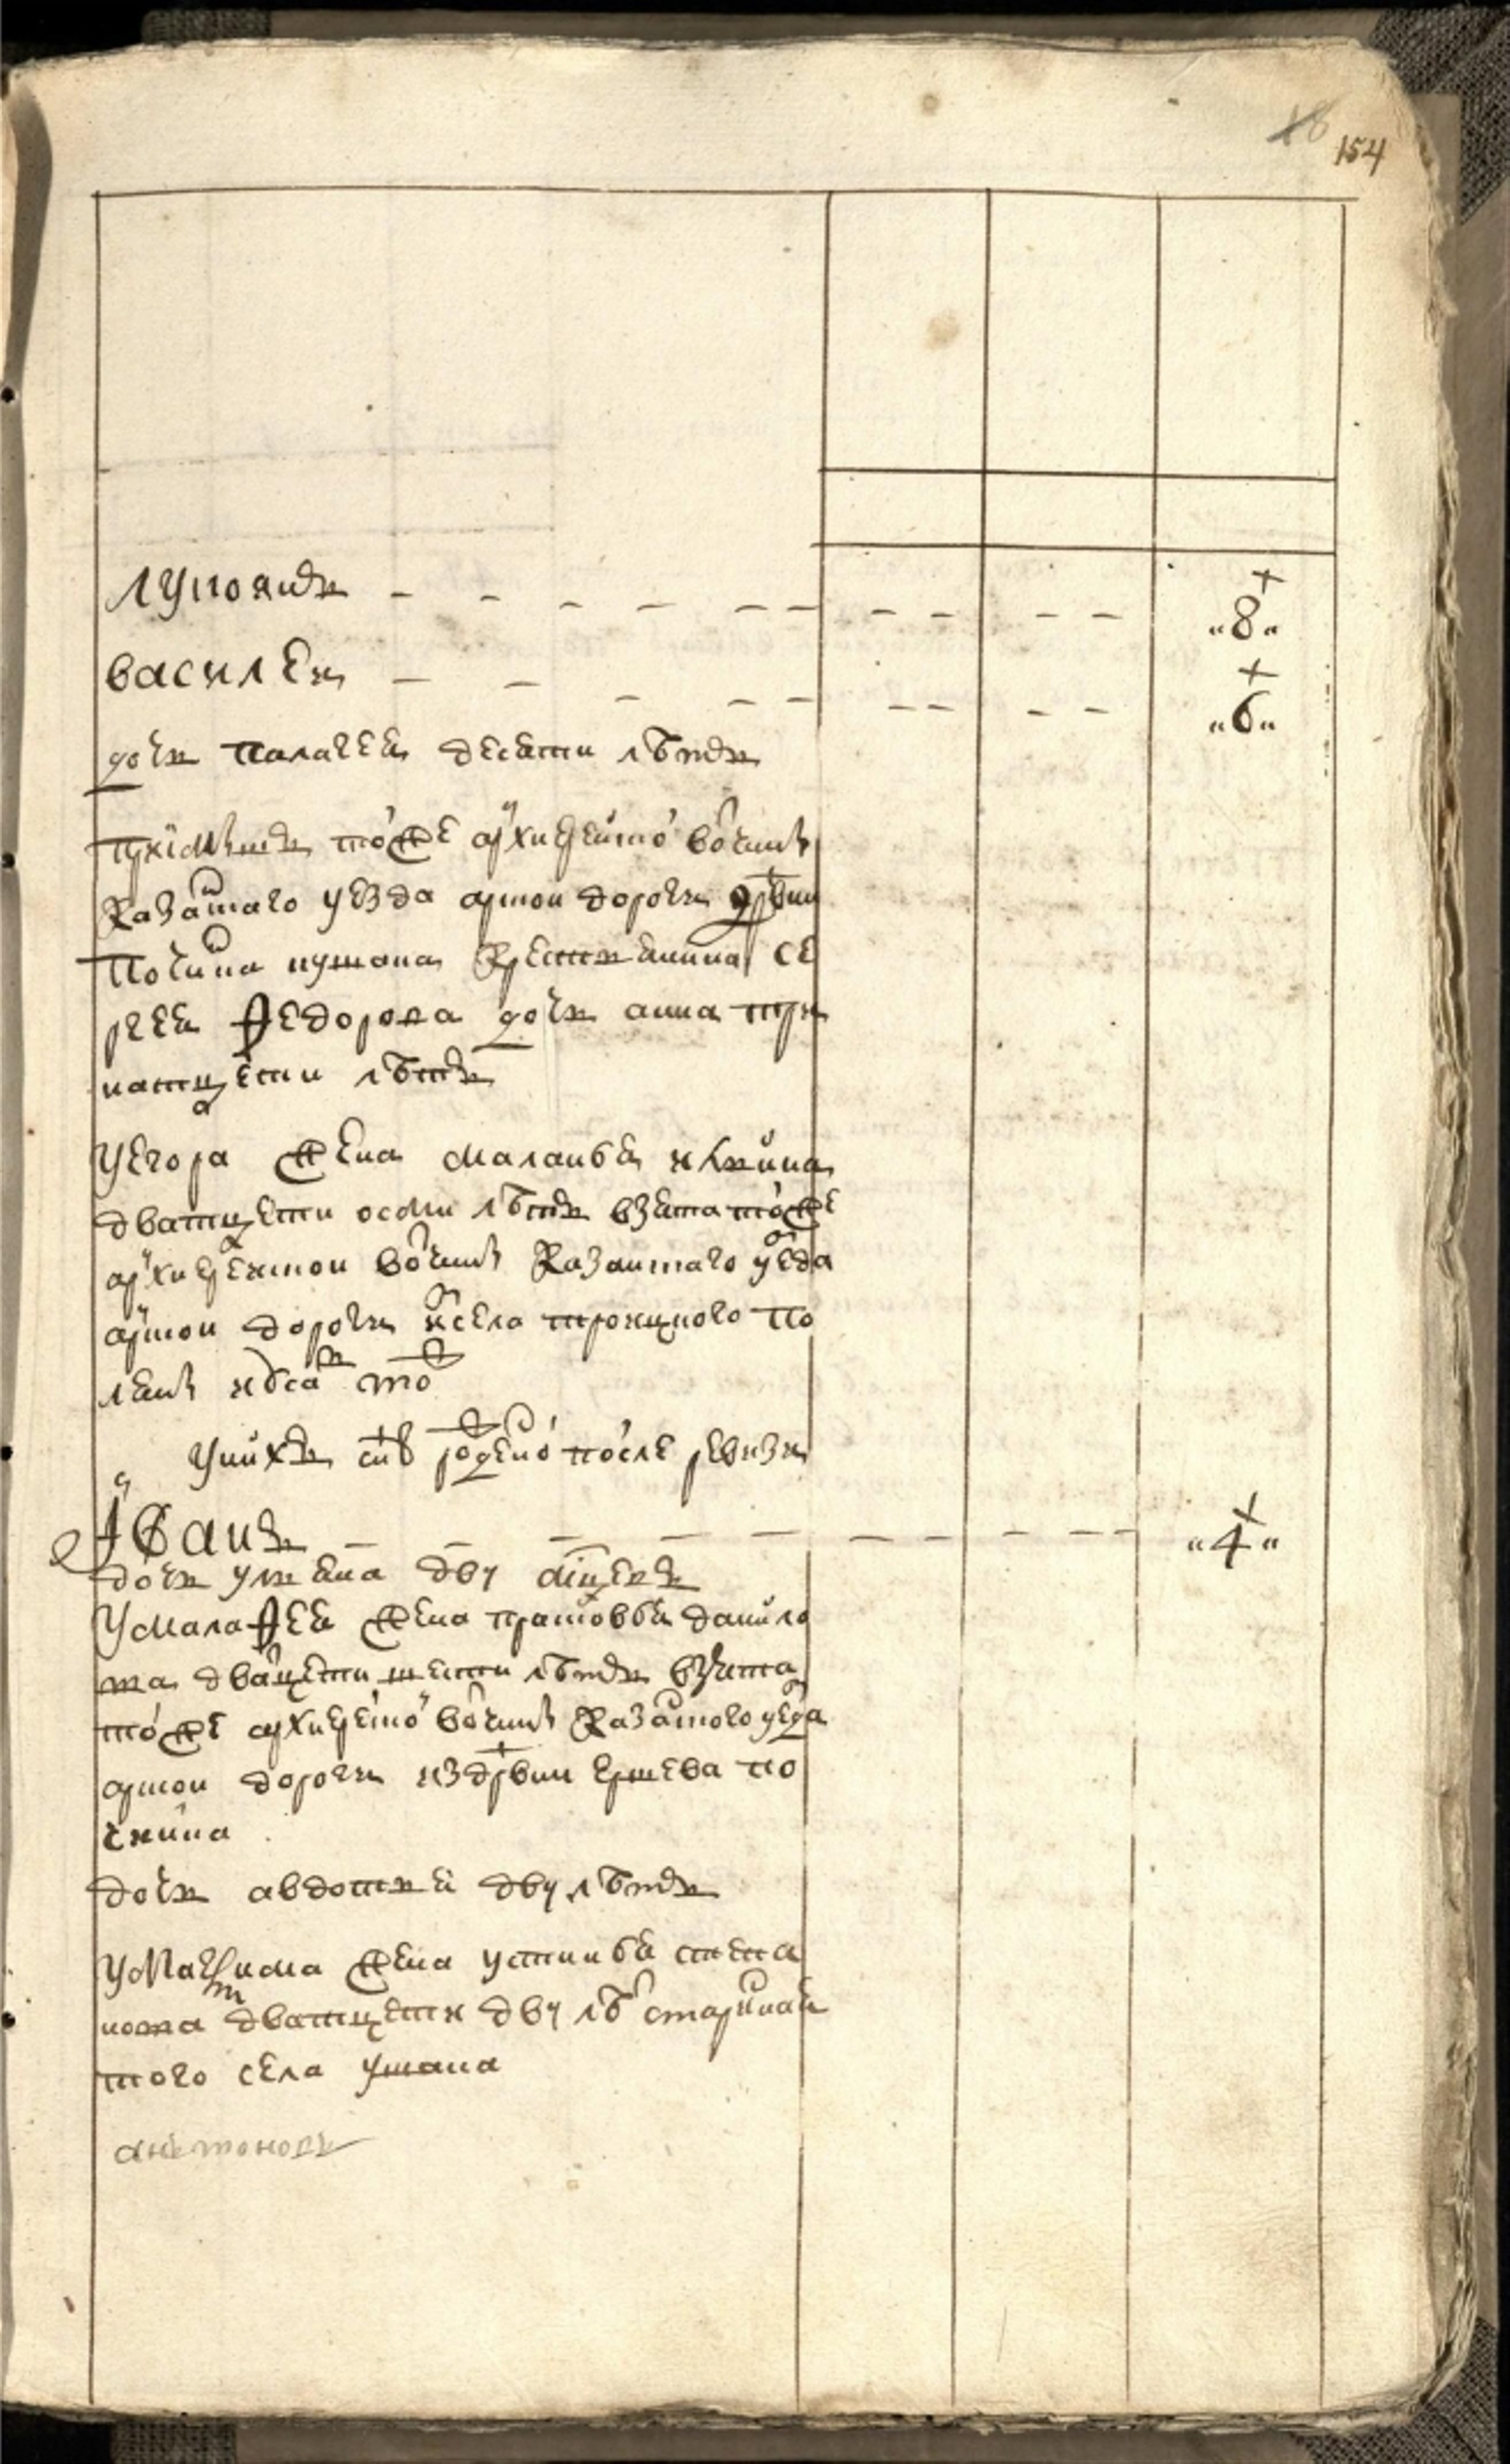 18 154
лупоянъ „8„
василеи „6„
дочь палагея десяти лѣтъ
приемышъ тоеже архиерейской вотчины
казанского уезда арской дороги дрвни
починка кушака крестьянина се
ргея Федорова дочь анна три
натцети лѣтъ
У егора жена маланья ильина
дватцети осми лѣтъ взята тоеже
архиерейской вотчины казанского уезда
арской дороги села троицкого по
ляны
У них сынъ рожденой после ревизи
іванъ „4„
дочь ульяна дву мсцевъ
У малафея жена прасковья данило
ва дватцети шести лѣтъ взята
тоеже архиерейской вотчины казанского уезда
арской дороги из дрвни ершева по
чинка
дочь авдотья дву лѣтъ
У максима жена устинья степа
нова дватцети дву лѣтъ старинная
того села